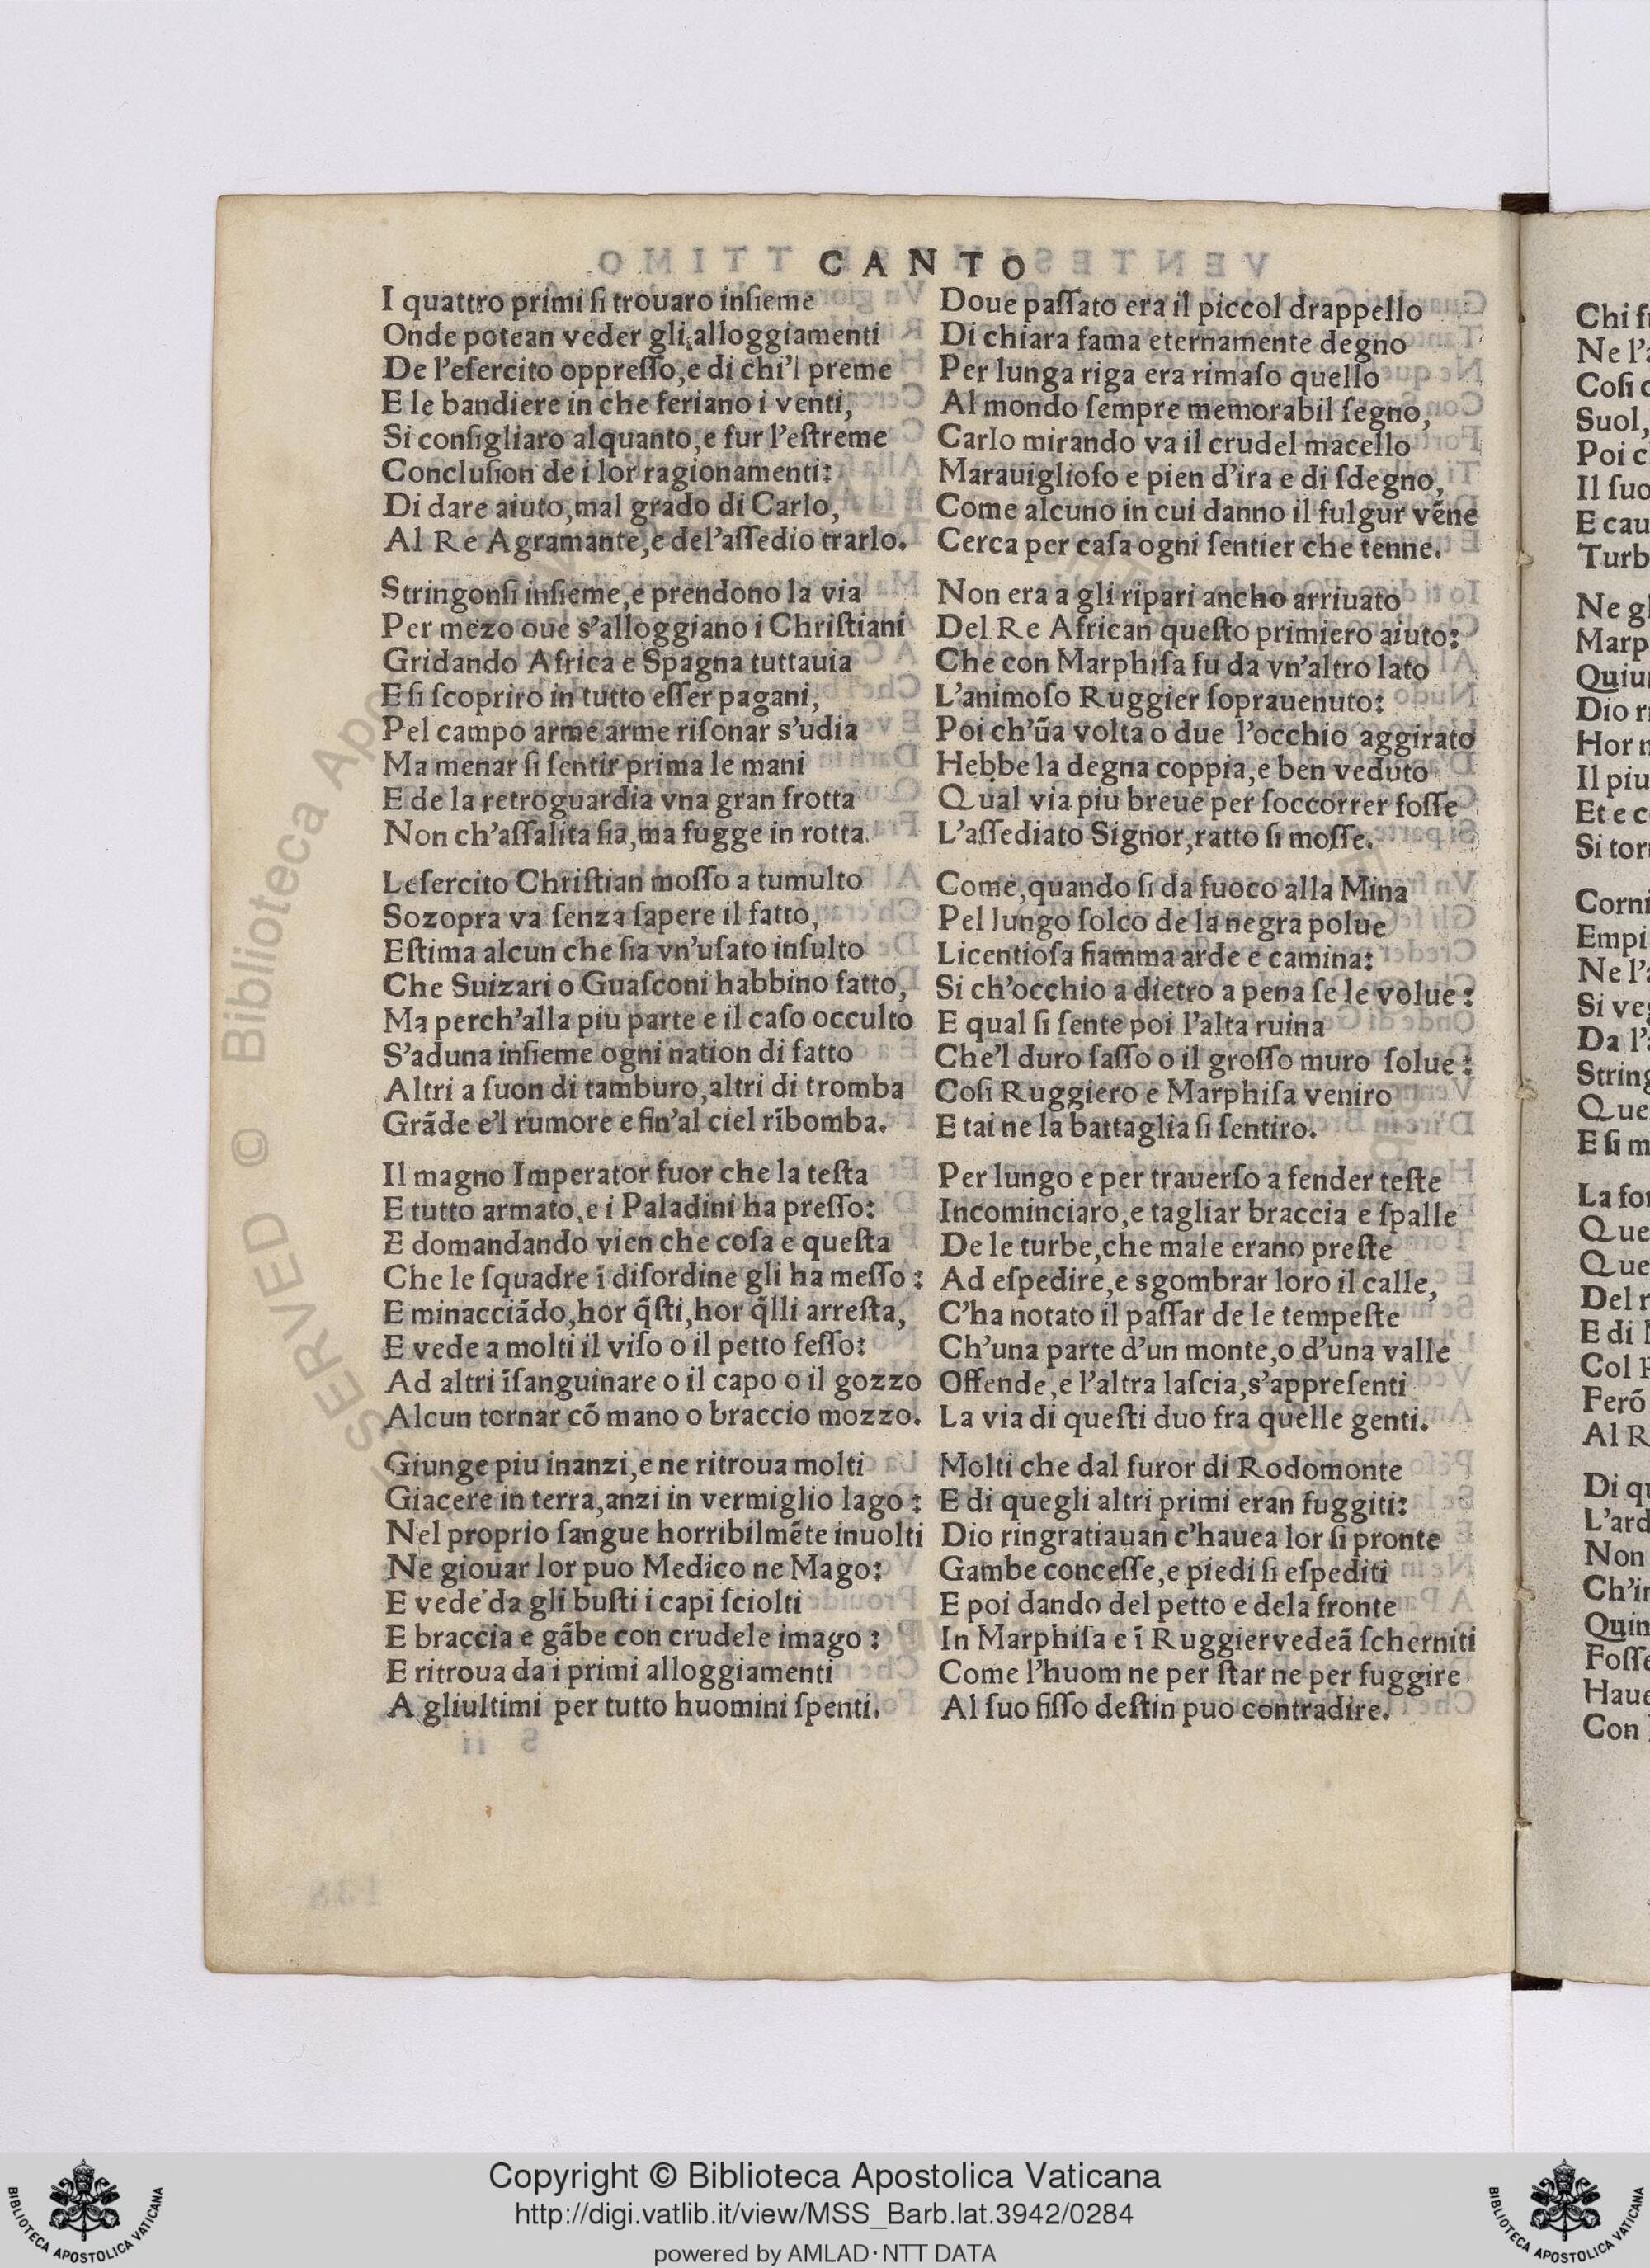 CANTO
I quattro primi ſi trouaro inſieme
Onde potean veder gli alloggiamenti
De l'eſercito oppreſſo,e di chi'l preme
E le bandiere in che feriano i venti,
Si conſigliaro alquanto,e fur l'eſtreme
Concluſion de i lor ragionamenti:
Di dare aiuto,mal grado di Carlo,
Al Re Agramante,e del'aſſedio trarlo.
Stringonſi inſieme,e prendono la via
Per mezo oue s'alloggiano i Chriſtiani
Gridando Africa e Spagna tuttauia
E ſi ſcopriro in tutto eſſer pagani,
Pel campo arme arme riſonar s'udia
Ma menar ſi ſentir prima le mani
E de la retroguardia vna gran frotta
Non ch'aſſalita ſia,ma fugge in rotta.
Leſercito Chriſtian moſſo a tumulto
Sozopra va ſenza ſapere il fatto,
Eſtima alcun che ſia vn'uſato inſulto
Che Suizari o Guaſconi habbino fatto,
Ma perch'alla piu parte e il caſo occulto
S'aduna inſieme ogni nation di fatto
Altri a ſuon di tamburo,altri di tromba
Grãde e'l rumore e fin'al ciel rĩbomba.
Il magno Imperator fuor che la teſta
E tutto armato,e i Paladini ha preſſo:
E domandando vien che coſa e queſta
Che le ſquadre ĩ diſordine gli ha meſſo:
E minacciãdo,hor q̃ſti,hor q̃lli arreſta,
E vede a molti il viſo o il petto feſſo:
Ad altri ĩſanguinare o il capo o il gozzo
Alcun tornar cõ mano o braccio mozzo.
Giunge piu inanzi,e ne ritroua molti
Giacere in terra,anzi in vermiglio lago:
Nel proprio ſangue horribilmẽte inuolti
Ne giouar lor puo Medico ne Mago:
E vede da gli buſti i capi ſciolti
E braccia e gãbe con crudele imago:
E ritroua da i primi alloggiamenti
A gliultimi per tutto huomini ſpenti.
Doue paſſato era il piccol drappello
Di chiara fama eternamente degno
Per lunga riga era rimaſo quello
Al mondo ſempre memorabil ſegno,
Carlo mirando va il crudel macello
Marauiglioſo e pien d'ira e di ſdegno,
Come alcuno in cui danno il fulgur vẽne
Cerca per caſa ogni ſentier che tenne.
Non era a gli ripari ancho arriuato
Del Re African queſto primiero aiuto:
Che con Marphiſa fu da vn'altro lato
L'animoſo Ruggier ſoprauenuto:
Poi ch'ũa volta o due l'occhio aggirato
Hebbe la degna coppia,e ben veduto
Qual via piu breue per ſoccorrer foſſe
L'aſſediato Signor,ratto ſi moſſe.
Come,quando ſi da fuoco alla Mina
Pel lungo ſolco de la negra polue
Licentioſa fiamma arde e camina:
Si ch'occhio a dietro a pena ſe le volue:
E qual ſi ſente poi l'alta ruina
Che'l duro ſaſſo o il groſſo muro ſolue:
Coſi Ruggiero e Marphiſa veniro
E tai ne la battaglia ſi ſentiro.
Per lungo e per trauerſo a fender teſte
Incominciaro,e tagliar braccia e ſpalle
De le turbe,che male erano preſte
Ad eſpedire,e sgombrar loro il calle,
C'ha notato il paſſar de le tempeſte
Ch'una parte d'un monte,o d'una valle
Offende,e l'altra laſcia,s'appreſenti
La via di queſti duo fra quelle genti.
Molti che dal furor di Rodomonte
E di quegli altri primi eran fuggiti:
Dio ringratiauan c'hauea lor ſi pronte
Gambe conceſſe,e piedi ſi eſpediti
E poi dando del petto e dela fronte
In Marphiſa e ĩ Ruggier vedeã ſcherniti
Come l'huom ne per ſtar ne per fuggire
Al ſuo fiſſo deſtin puo contradire.
Chi
Ne l'
Coſi
Suol,
Poi
Il ſuo
E
Turb
Ne
Marp
Quiu
Dio
Hor
Il piu
Et e
Si
Corni
Empi
Ne l'
Si
Da
String
Que
E ſi
La
Que
Que
Del
E di
Col
Ferõ
Al
Di
L'ard
Non
Ch'in
Quin
Foſſe
Haue
Con
SERVED © Biblioteca Apo
Copyright © Biblioteca Apostolica Vaticana
http://digi.vatlib.it/view/MSS_Barb.lat.3942/0284
powered by AMLAD·NTT DATA
BIBLIOTECA APOSTOLICA VATICANA
BIBLIOTECA APOSTOLICA VATICANA